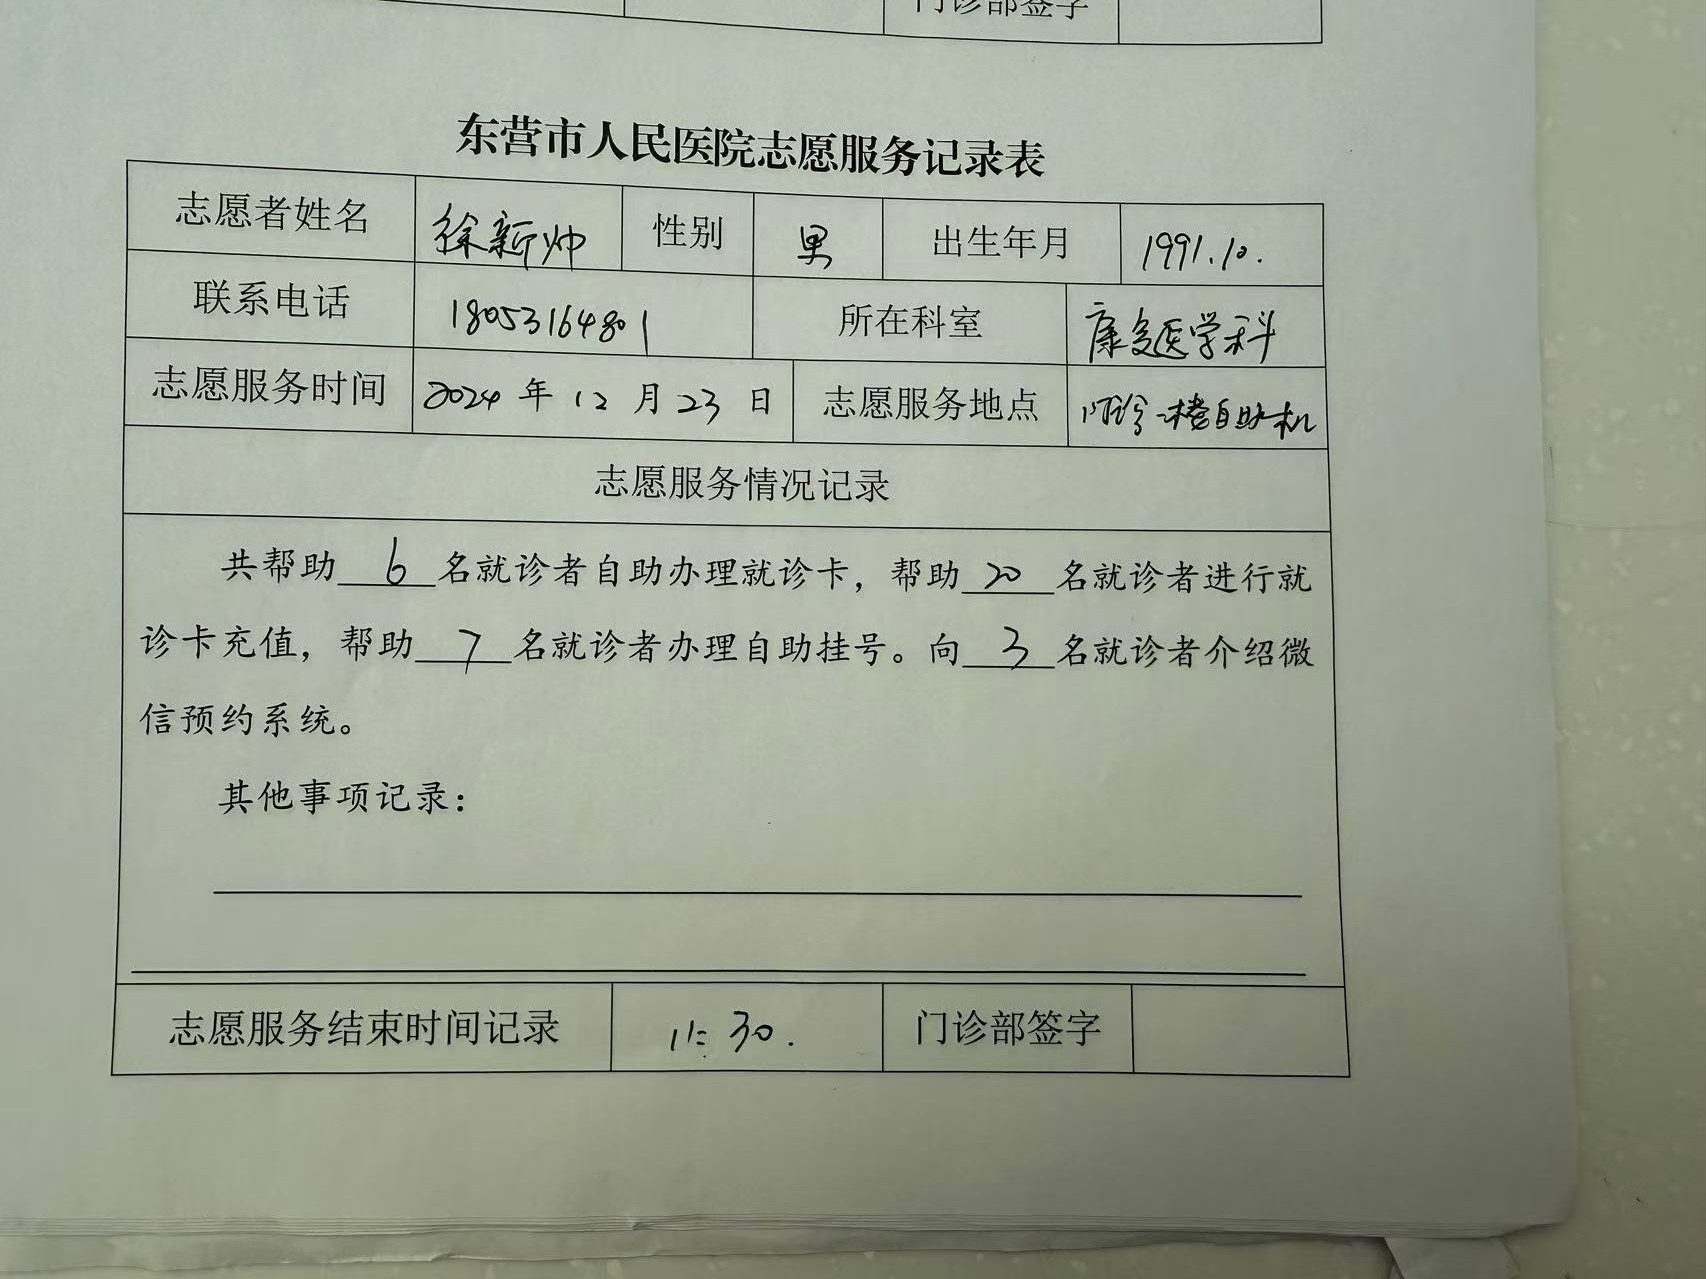 门诊部签字
东营市人民医院志愿服务记录表
志愿者姓名 徐新帅 性别 男 出生年月 1991.10.
联系电话 18053164801 所在科室 康复医学科
志愿服务时间 2024年12月23日 志愿服务地点 门诊一楼自助机
志愿服务情况记录
共帮助6名就诊者自助办理就诊卡，帮助20名就诊者进行就
诊卡充值，帮助7名就诊者办理自助挂号。向3名就诊者介绍微
信预约系统。
其他事项记录：
志愿服务结束时间记录 11:30. 门诊部签字